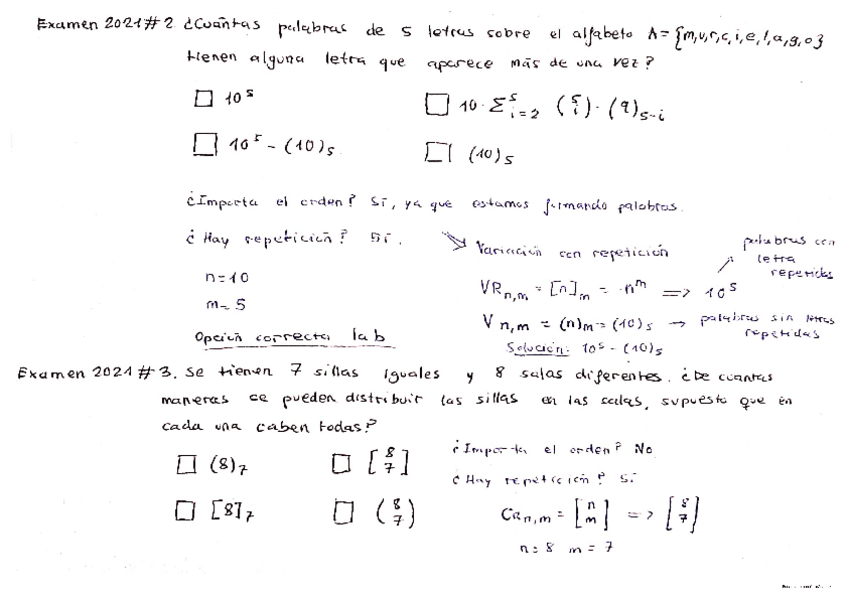 Examen 2021 #2 ¿Cuántas palabras de 5 letras sobre el alfabeto A = {m,u,r,c,i,e,l,a,g,o}
tienen alguna letra que aparece más de una vez?
□ 10⁵
□ 10 · Σ⁵ᵢ₌₂ (5 i) · (9)₅₋ᵢ
□ 10⁵ - (10)₅
□ (10)₅
¿Importa el orden? Sí, ya que estamos formando palabras.
¿Hay repetición? Sí.
Variación con repetición
palabras con
letra
repetidas
n=10
m=5
VRn,m = [n]m = nᵐ => 10⁵
V n,m = (n)m = (10)₅ → palabras sin letras
repetidas
Opción correcta la b
Solución: 10⁵ - (10)₅
Examen 2021 #3. Se tienen 7 sillas iguales y 8 salas diferentes. ¿De cuantas
maneras se pueden distribuir las sillas en las salas, supuesto que en
cada una caben todas?
¿Importa el orden? No
□ (8)₇
□ [8 7]
¿Hay repetición? Sí
□ [8]₇
□ (8 7)
CRn,m = [n m] => [8 7]
n=8 m=7